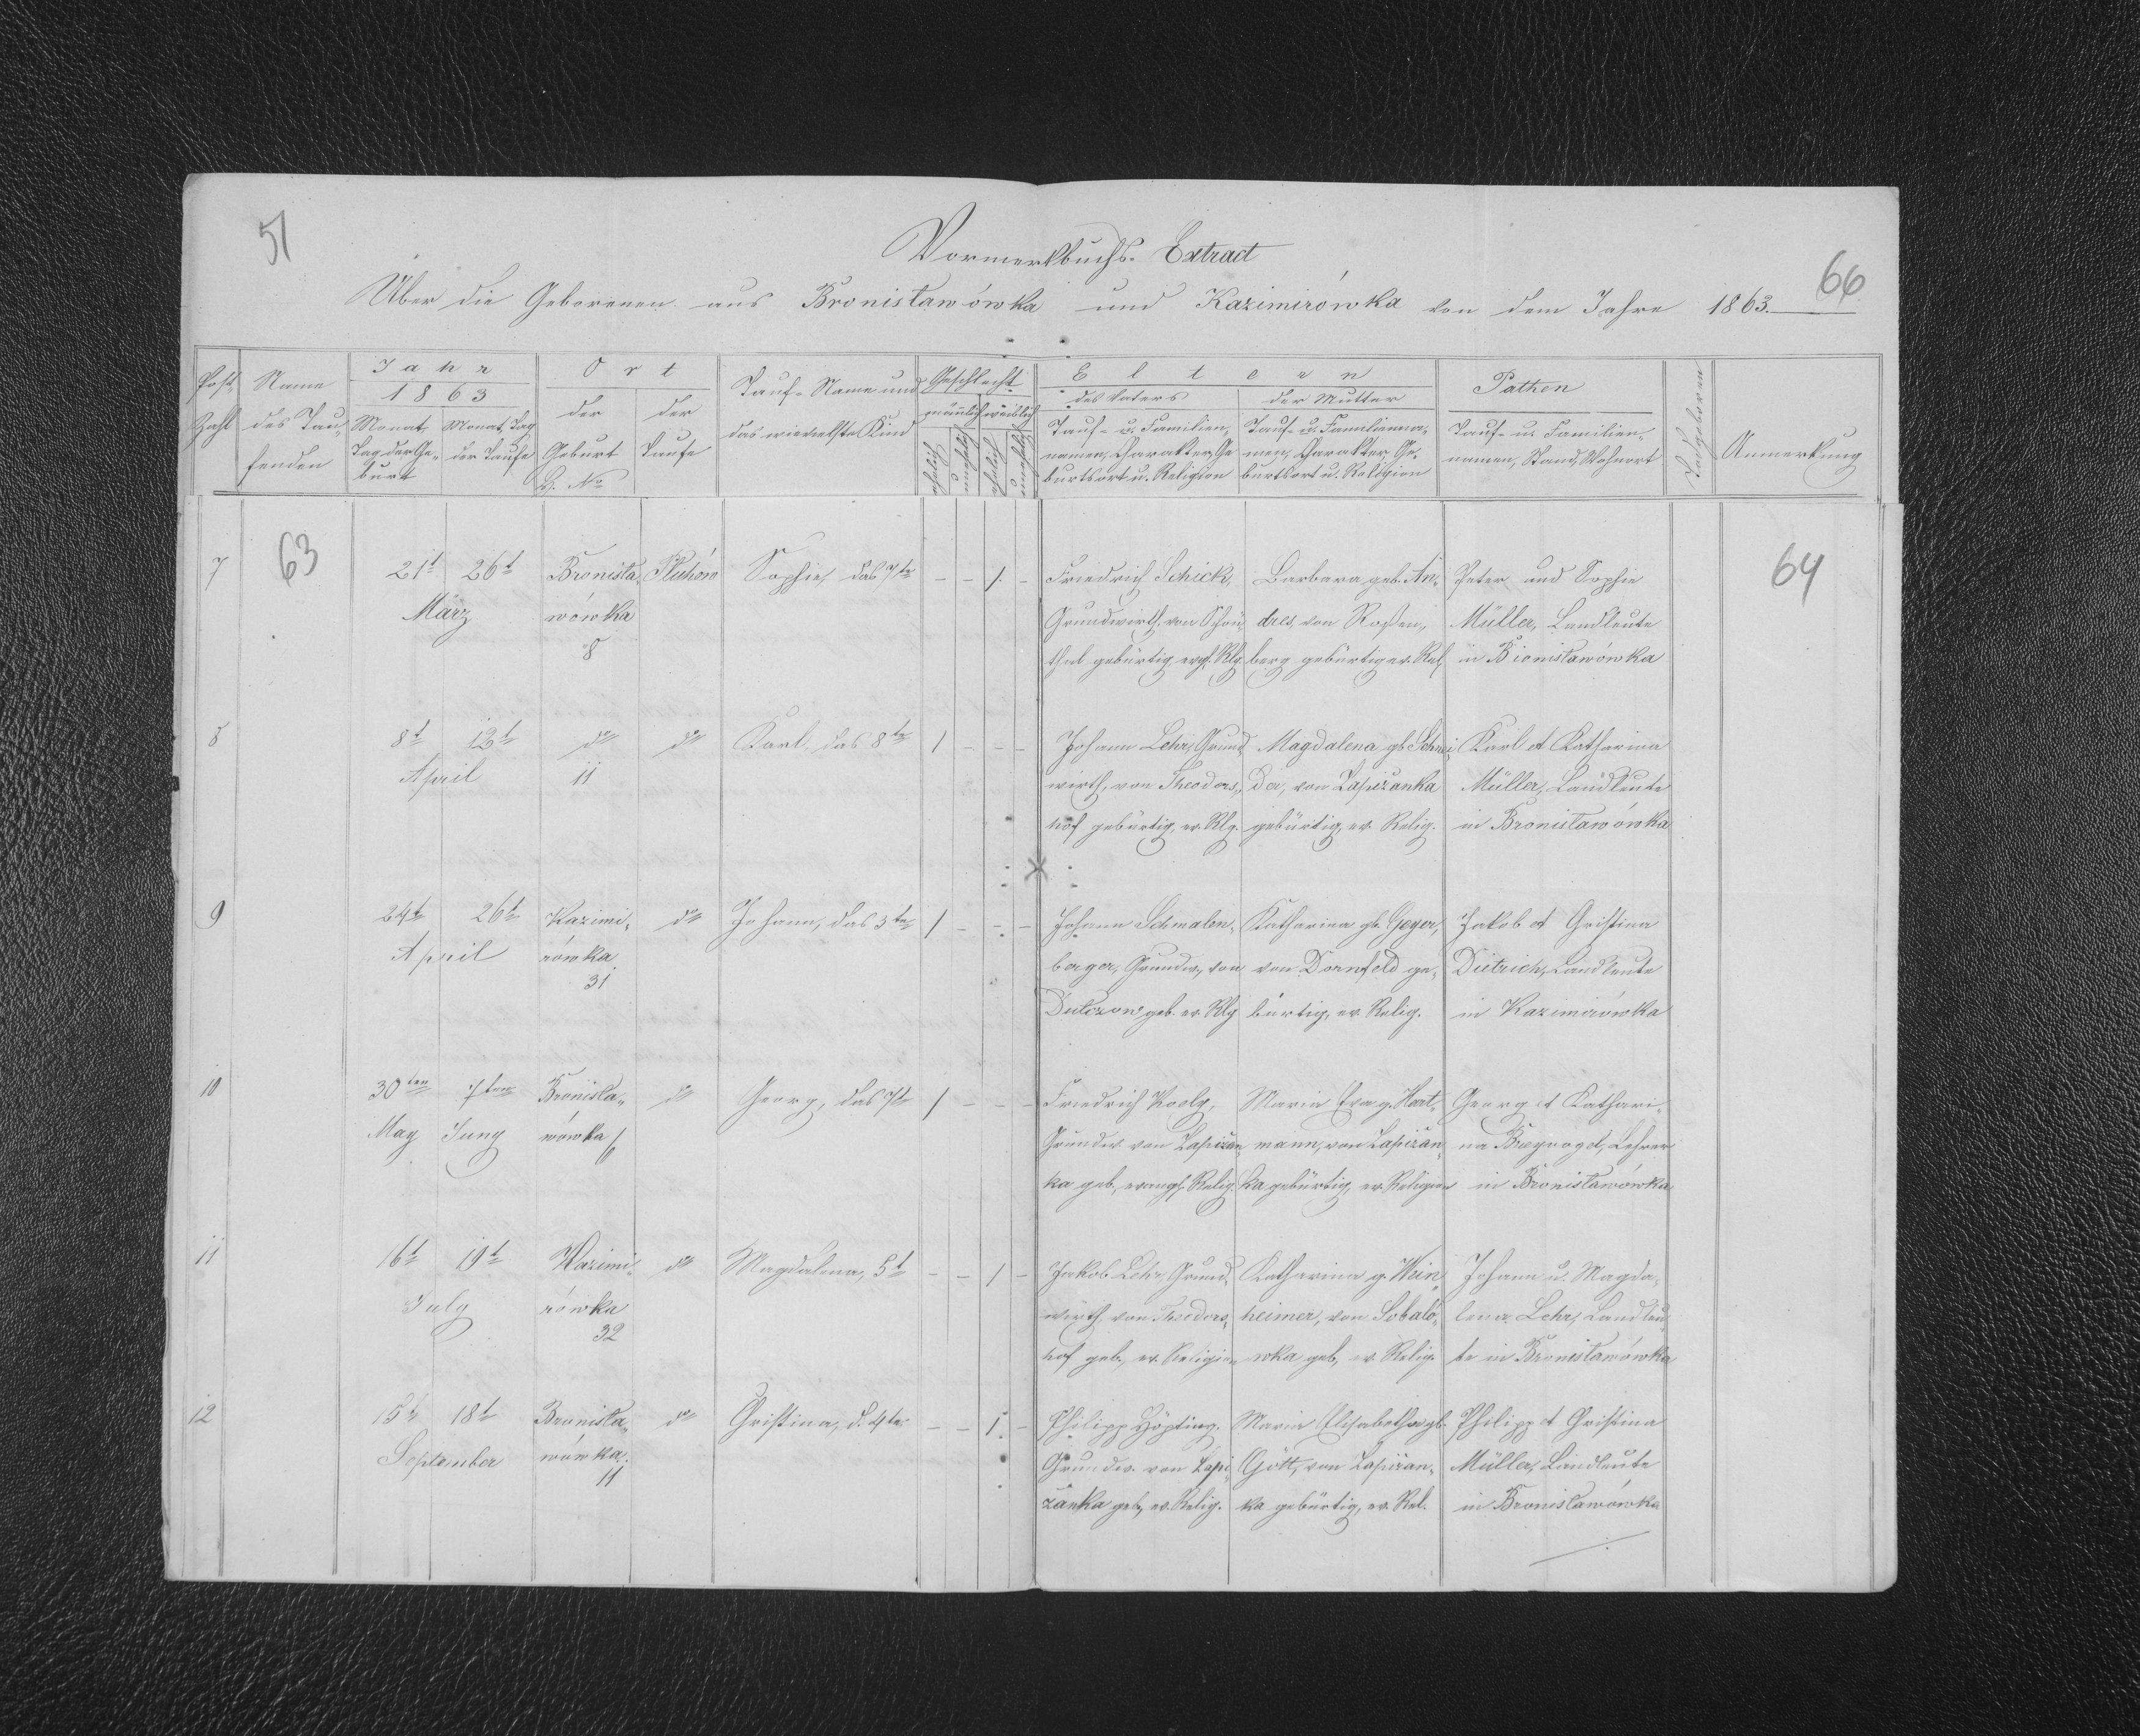 51
Vormerkbuchs-Extract
66
Über die Geborenen aus Bronisławówka und Kazimirówka von dem Jahre 1863.
Post-Zahl
Name des Taufenden
Jahr
1863
Monat, Tag der Geburt
Monat, Tag der Taufe
Ort
der Geburt H. No
der Taufe
Tauf-Name und das wievielste Kind
Geschlecht
männlich
weiblich
ehelich
unehelich
ehelich
unehelich
Eltern
des Vaters
Tauf- u. Familien-
namen, Charakter, Ge-
burtsort u. Religion
der Mutter
Tauf- u. Familienna-
men, Charakter, Ge-
burtsort u. Religion
Pathen
Tauf- u. Familien-
namen, Stand, Wohnort
Todtgeboren
Anmerkung
63
64
7
21t 26t
März
Bronisła-
wówka
8
Pluhów
Sophie, das 7te
- - 1. -
Friedrich Schick,
Grundwirth, von Schön-
thal gebürtig, evgl. Rlg.
Barbara geb. An-
dres, von Roßen-
berg gebürtig ev. Rel.
Peter und Sophie
Müller, Landleute
in Bronisławówka
8
8t 13t
April
do
11
do
Karl, das 8te
1 - - -
Johann Lehr, Grund-
wirth, von Theodors-
hof gebürtig, ev. Rlg.
Magdalena gb. Schnei-
der, von Łapiżanka
gebürtig, ev. Relig.
Karl et Katharina
Müller, Landleute
in Bronisławówka
9
24t 26t
April
Kazimi-
rówka
31
do
Johann, das 3te
1 - - -
Johann Schmalen-
berger, Grundw., von
Dulczow, geb. ev. Rlg
Katharina gb. Geyer,
von Dornfeld ge-
bürtig, ev. Relig.
Jakob et Christina
Dietrich, Landleute
in Kazimirówka
10
30ten 7ten
May Juny
Bronisła-
wówka
do
Georg, das 7te
1 - - -
Friedrich
Grundw. von Łapiżan-
ka geb., evangl. Relig.
Maria Eva g. Hart-
mann, von Łapiżan-
ka gebürtig, ev. Religion
Georg et Kathari-
na Lehrer
in Bronisławówka
11
16t 19t
July
Kazimi-
rówka
32
do
Magdalena, 5t
- - 1 -
Jakob Lehr, Grund-
wirth, von Theodors-
hof geb., ev. Religion
Katharina g. Wein-
heimer, von Sobaló-
wka geb., ev. Relig.
Johann u. Magda-
lena Lehr, Landleu-
te in Bronisławówka
12
15t 18t
September
Bronisła-
wówka.
11
do
Christina, d. 4te
- - 1. -
Philipp Höpting.
Grundw. von Łapi-
żanka geb., ev. Relig.
Maria Elisabetha gb.
Gött, von Łapiżan-
ka gebürtig, ev. Rel.
Philipp et Christina
Müller, Landleute
in Bronisławówka